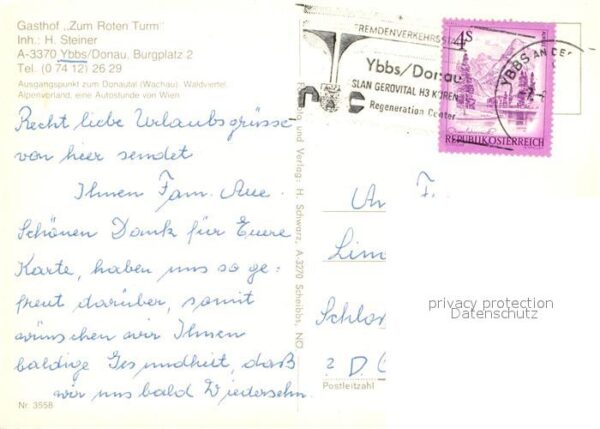 Gasthof „Zum Roten Turm"
Inh.: H. Steiner
A-3370 Ybbs/Donau, Burgplatz 2
Tel. (0 74 12) 26 29
Ausgangspunkt zum Donautal (Wachau), Waldviertel,
Alpenvorland, eine Autostunde von Wien
Recht liebe Urlaubsgrüsse
von hier sendet
Ihnen Fam. Aue.
Schönen Dank für Euere
Karte, haben uns so ge-
freut darüber, somit
wünschen wir Ihnen
baldige Gesundheit, daß
wir uns bald Wiedersehn.
Nr. 3558
Foto und Verlag: H. Schwarz, A-3270 Scheibbs, NÖ
FREMDENVERKEHRSSTA
Ybbs/Donau
SLAN GEROVITAL H3 KUREN
Regeneration Center
4S
REPUBLIK ÖSTERREICH
YBBS AN DER
An F
Lim
Schlo
2 D.
Postleitzahl
privacy protection
Datenschutz